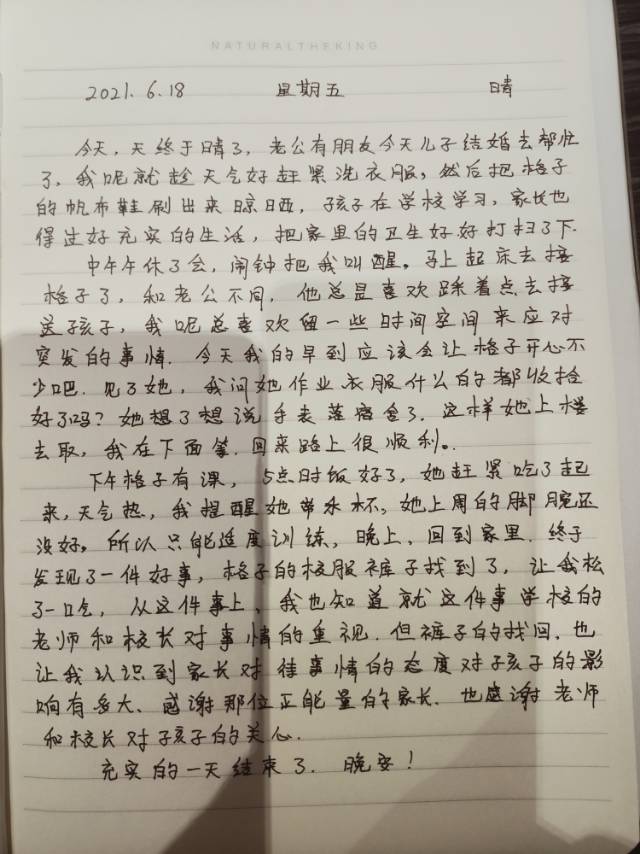 NATURALTHEKING
2021.6.18 星期五 晴
今天,天终于晴了,老公有朋友今天儿子结婚去帮忙
了,我呢就趁天气好赶紧洗衣服,然后把格子
的帆布鞋刷出来晾晒,孩子在学校学习,家长也
得过好充实的生活,把家里的卫生好好打扫了下.
中午午休了会,闹钟把我叫醒。马上起床去接
格子了,和老公不同,他总是喜欢踩着点去接
送孩子,我呢总喜欢留一些时间空间来应对
突发的事情.今天我的早到应该会让格子开心不
少吧.见了她,我问她作业衣服什么的都收拾
好了吗?她想了想说手表落宿舍了.这样她上楼
去取,我在下面等.回来路上很顺利。
下午格子有课,5点时饭好了,她赶紧吃了起
来,天气热,我提醒她带水杯,她上周的脚腕还
没好。所以只能适度训练,晚上、回到家里.终于
发现了一件好事,格子的校服裤子找到了,让我松
了一口气,从这件事上、我也知道就这件事学校的
老师和校长对事情的重视.但裤子的找回.也
让我认识到家长对待事情的态度对子孩子的影
响有多大、感谢那位正能量的家长.也感谢老师
和校长对子孩子的关心.
充实的一天结束了.晚安!